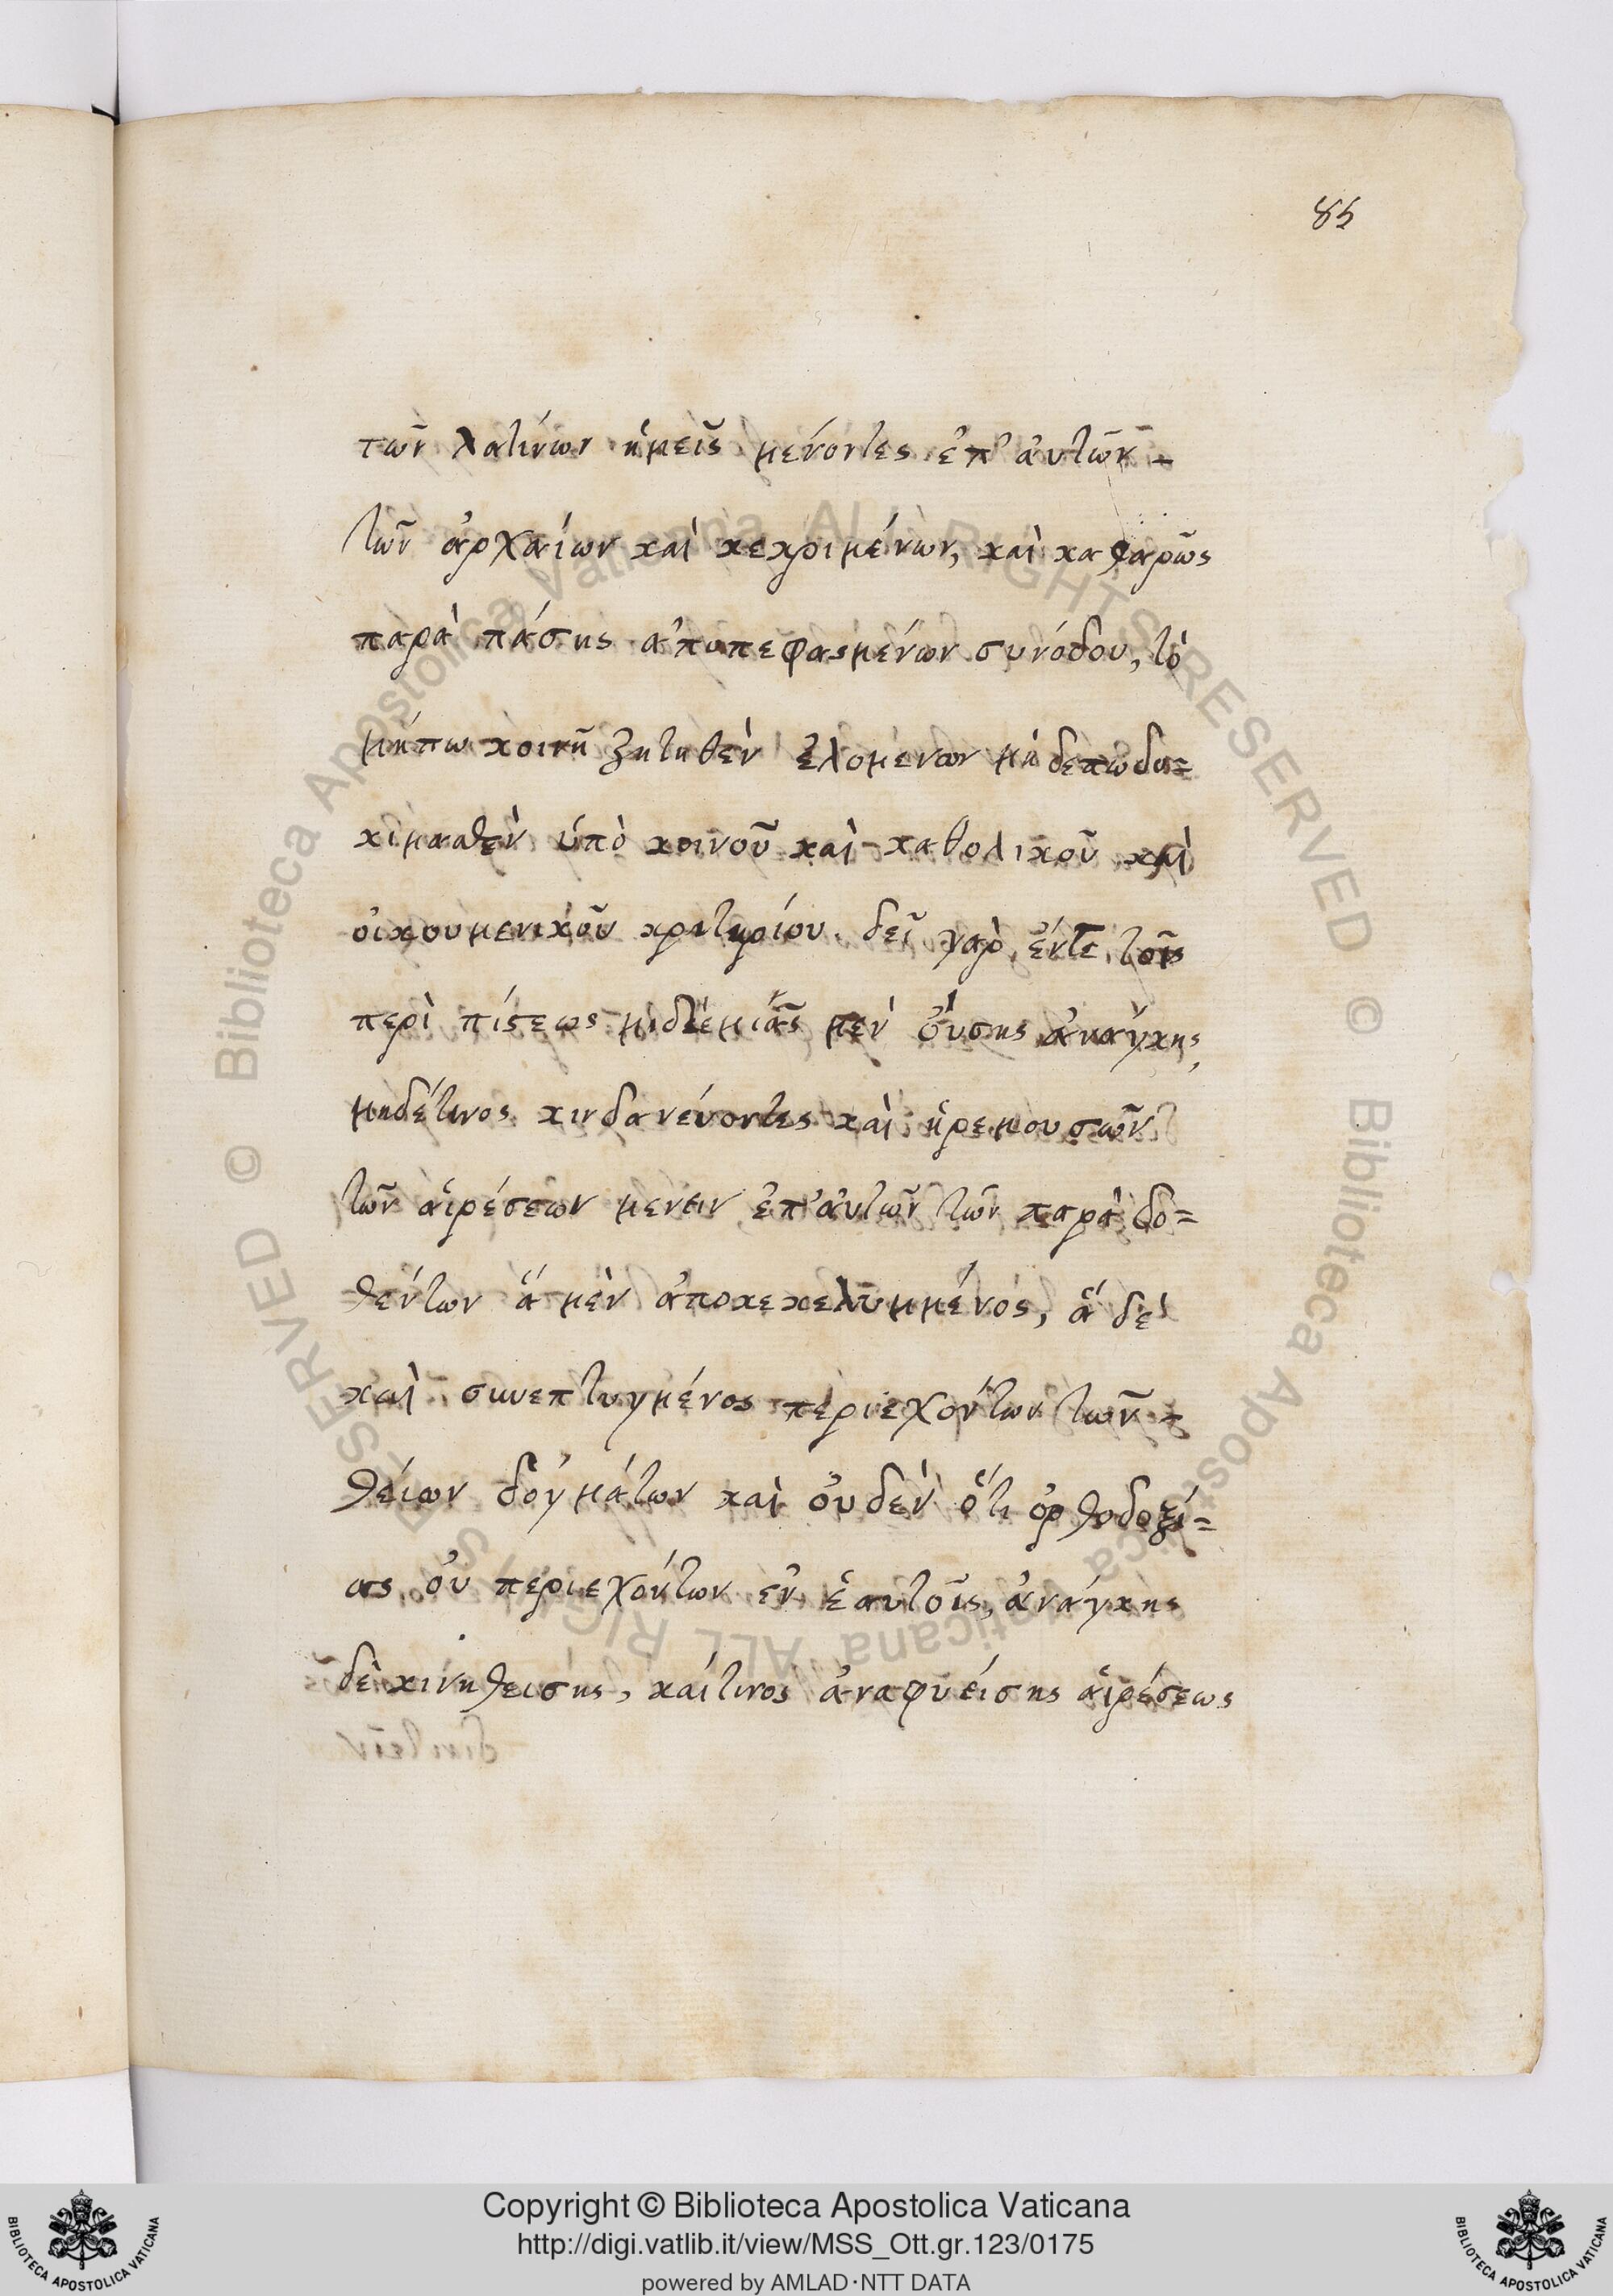 85
τῶν λατίνων ἡμεῖς μένοντες ἐπ' ἀυτῶν -
τῶν ἀρχαίων καὶ κεκριμένων, καὶ καθαρῶς
παρὰ πάσης ἀποπεφασμένων συνόδου, τὸ
μήπω κοινῆ ζητηθὲν ἑλομενων μὴ δεπὼ δο=
κιμασθὲν ὑπὸ κοινοῦ καὶ καθολικοῦ καὶ
οἰκουμενικοῦ κριτηρίου. δεῖ γαρ ἐντε τοῖς
περὶ πίστεως μιδεμιᾶς μεν ὀύσης ἀνάγκης,
μηδέτινος κινδανεύοντες καὶ ἠρεμουσῶν
τῶν αἱρέσεων μενειν ἐπ' ἀυτῶν τῶν παρὰ δο=
θέντων ἅ μὲν ἀποκεκελυμμένος, ἅ δὲ
καὶ συνεπτυγμένος περιεχόντων τῶν -
θείων δογμάτων καὶ ὀυδὲν ὅτι ὀρθοδοξί=
ας ὀυ περιεχόντων ἐν ἑαυτοῖς, ἀνάγκης
δὲ κινηθεισης, καίτινος ἀναφυείσης αἱρέσεως
Copyright © Biblioteca Apostolica Vaticana
http://digi.vatlib.it/view/MSS_Ott.gr.123/0175
powered by AMLAD·NTT DATA